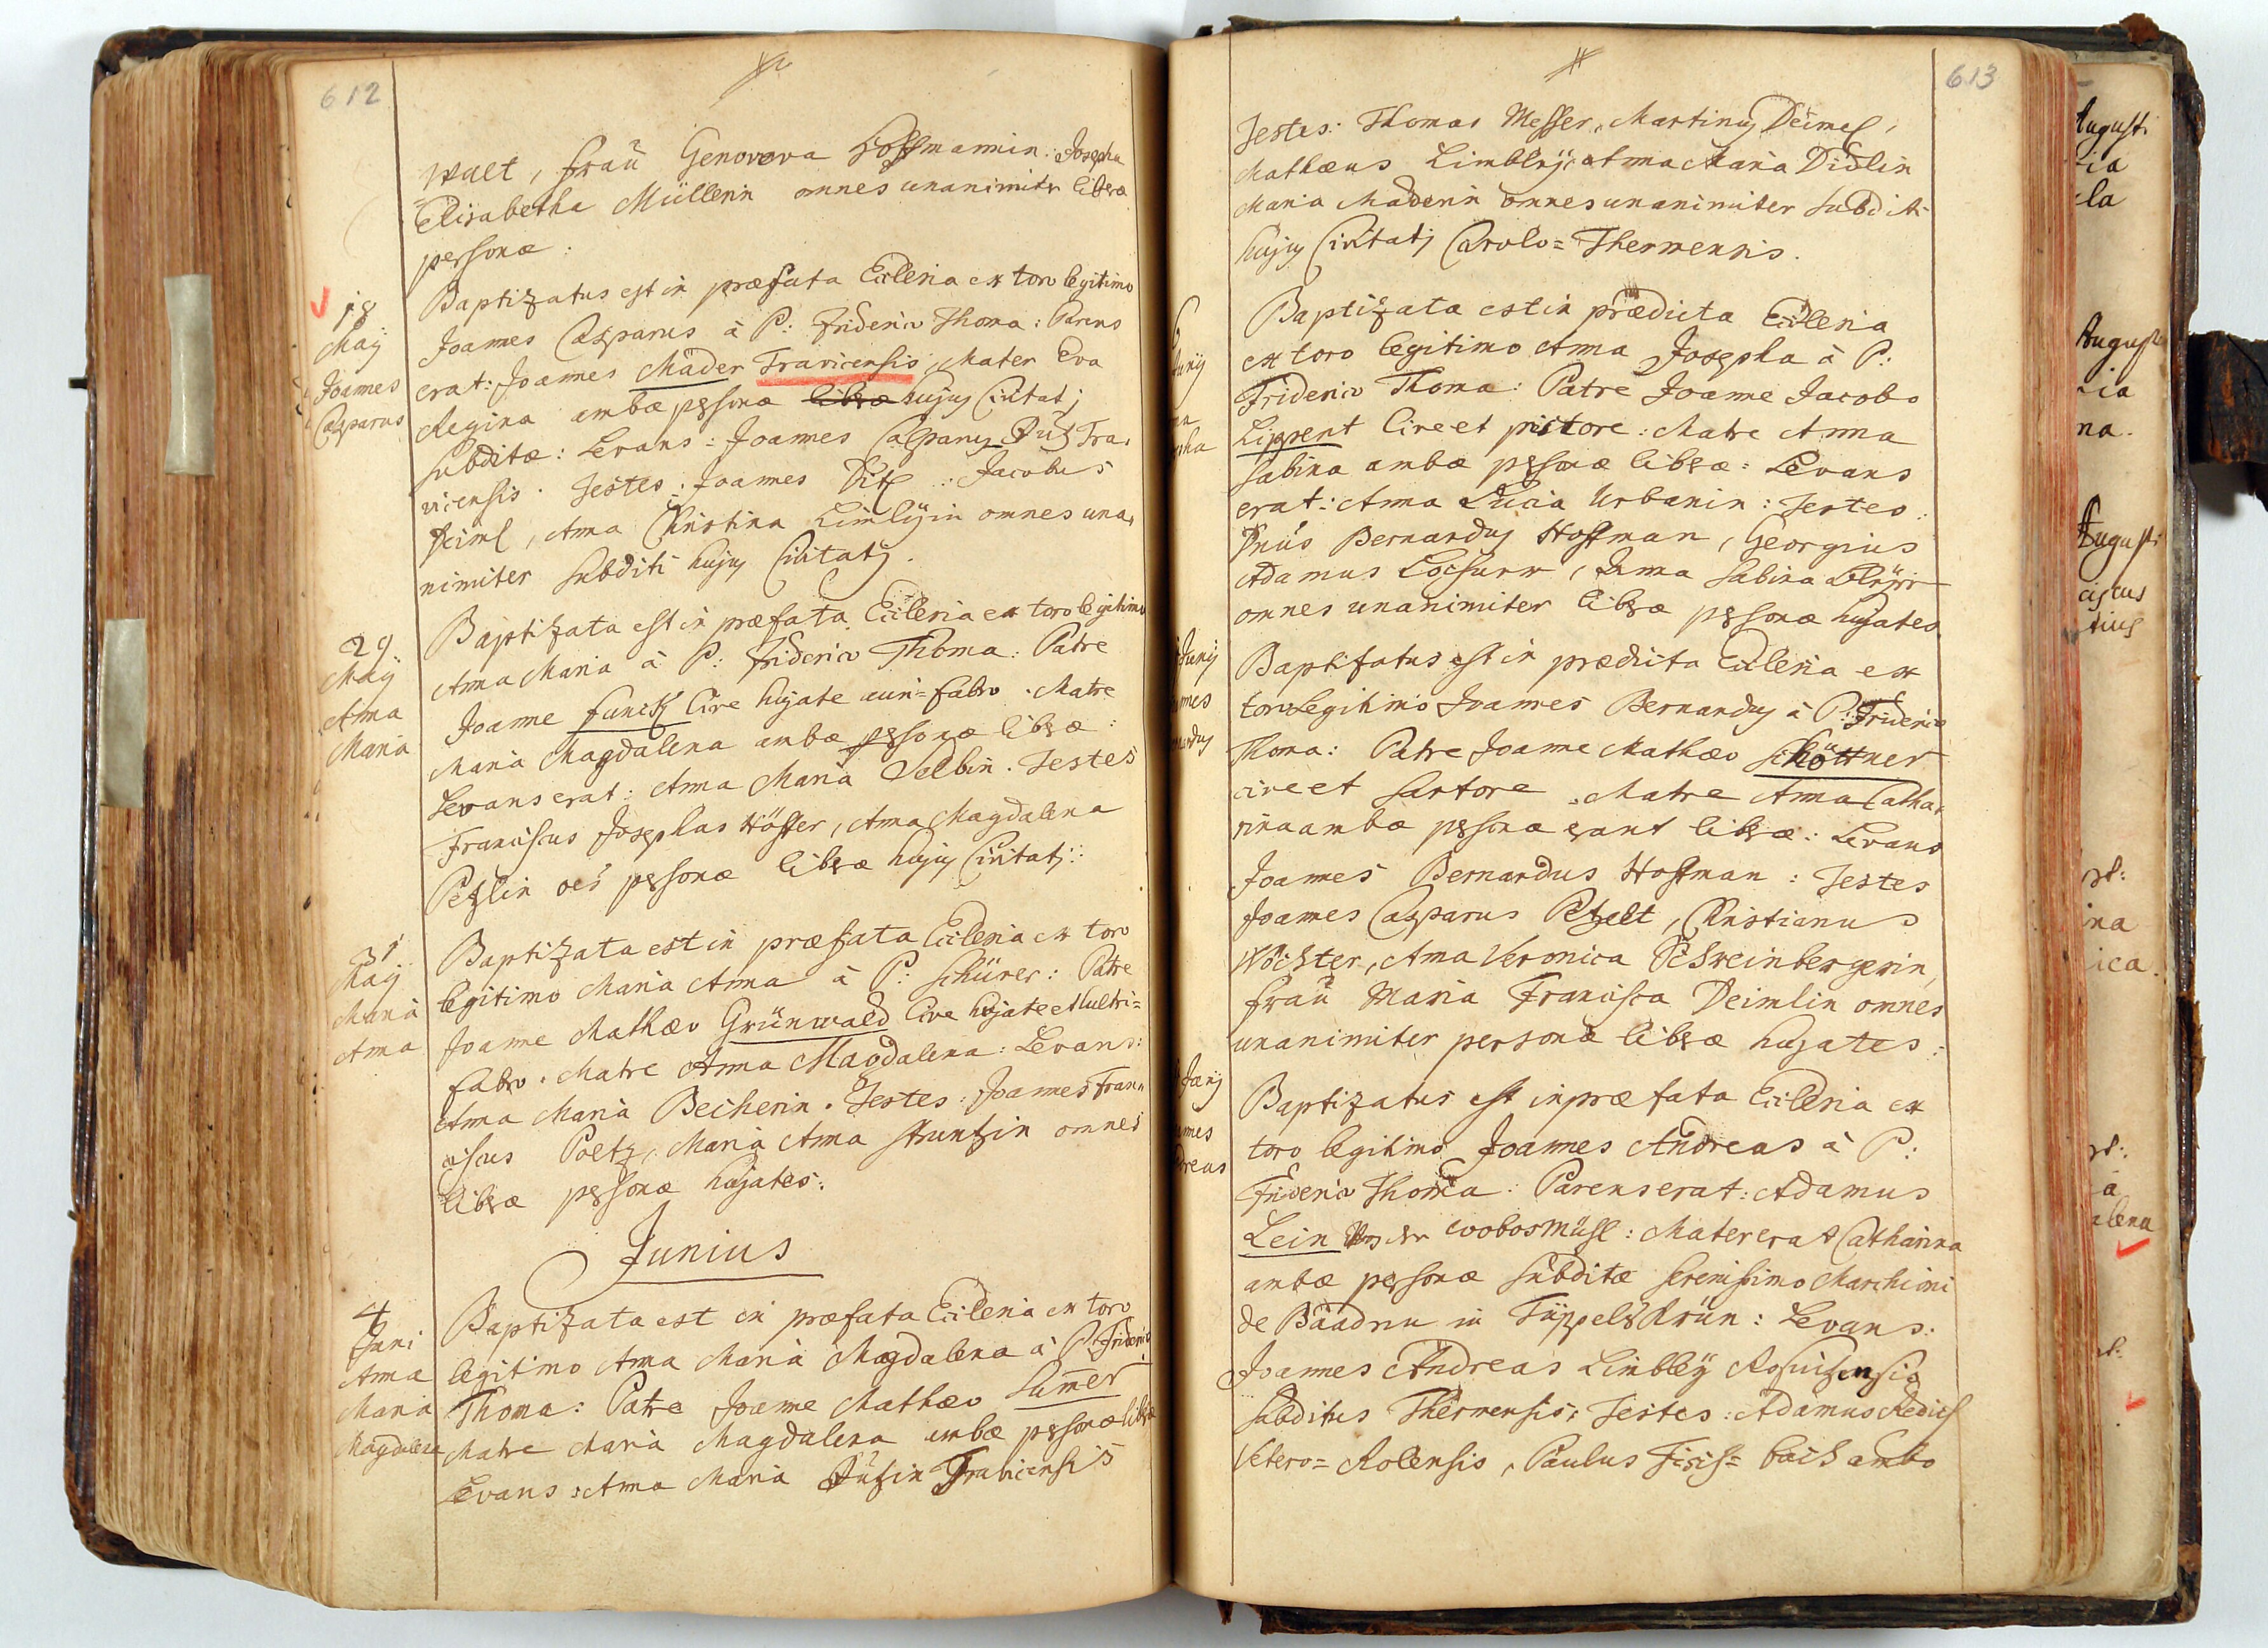 612
Walt, Frau Genovova Hoffmannin: Josepha
Elisabetha Müllerin omnes unanimiter libræ
personæ:
18
Maÿ
Joannes
Casparus
Baptizatus est in præfata Ecclesia ex toro legitimo
Joannes Casparus à P: Friderico Thoma: Parens
erat: Joannes Mader Travicensis, Mater Eva
Regina ambæ personæ libræ hujus Civitatis
subditæ: Levans: Joannes Casparus Tra-
vicensis. Testes: Joannes Jacobus
Deiml, Anna Christina Limlÿin omnes una-
nimiter subditi hujus Civitatis.
29
Maÿ
Anna
Maria
Baptizata est in præfata Ecclesia ex toro legitimo
Anna Maria à P: Friderico Thoma: Patre
Joanne Funck Cive hujate auri-fabro. Matre
Maria Magdalena ambæ personæ libræ:
Levans erat: Anna Maria Selbin. Testes
Franciscus Josephus Höffer, Anna Magdalena
Petzlin oes personæ libræ hujus Civitatis:
31
Maÿ
Maria
Anna
Baptizata est in præfata Ecclesia ex toro
legitimo Maria Anna à P: Schürer: Patre
Joanne Mathæo Grünwald Cive hujate et cultri=
fabro. Matre Anna Magdalena: Levans:
Anna Maria Becherin. Testes: Joannes Fran-
ciscus Poltz, Maria Anna Stuntzin omnes
libræ personæ hujates:
Junius
4
Juni
Anna
Maria
Magdalena
Baptizata est in præfata Ecclesia ex toro
legitimo Anna Maria Magdalena à P: Friderico
Thoma: Patre Joanne Mathæo Sumer
Matre Maria Magdalena ambæ personæ libræ
Levans: Anna Maria Travicensis
613
Testes: Thomas Messer, Martinus Deimel,
Mathæus Limbleÿ, Anna Maria Didlin
Maria Maderin omnes unanimiter subditi
hujus Civitatis Carolo=Thermensis.
6
Junij
Baptizata est in prædicta Ecclesia
ex toro legitimo Anna Josepha à P:
Friderico Thoma: Patre Joanne Jacobo
Lippert Cive et pistore: Matre Anna
Sabina ambæ personæ libræ: Levans
erat: Anna Lucia Urbanin: Testes:
Dnus Bernardus Hoffman, Georgius
Adamus, Anna Sabina
omnes unanimiter libræ personæ hujates.
Junij
Baptizatus est in prædicta Ecclesia ex
toro Legitimo Joannes Bernardus à P: Friderico
Thoma: Patre Joanne Mathæo Schöttner
cive et sartore. Matre Anna Catha-
rina ambæ personæ erant libræ: Levans
Joannes Bernardus Hoffman: Testes
Joannes Casparus Petzelt, Christianus
Wöchter, Anna Veronica Schreinbergerin,
Frau Maria Francisca Deimlin omnes
unanimiter personæ libræ hujates:
Junij
Baptizatus est in præfata Ecclesia ex
toro legitimo Joannes Andreas à P:
Friderico Thoma: Parens erat: Adamus
Lein von der Wobosmühl: Mater erat Catharina
ambæ personæ subditæ serenissimo Marchioni
de Baaden in Tüppelsgrün: Levans:
Joannes Andreas Limbleÿ
subditus Thermensis: Testes: Adamus
Vetero=Rolensis, Paulus Fisch=bach ambo